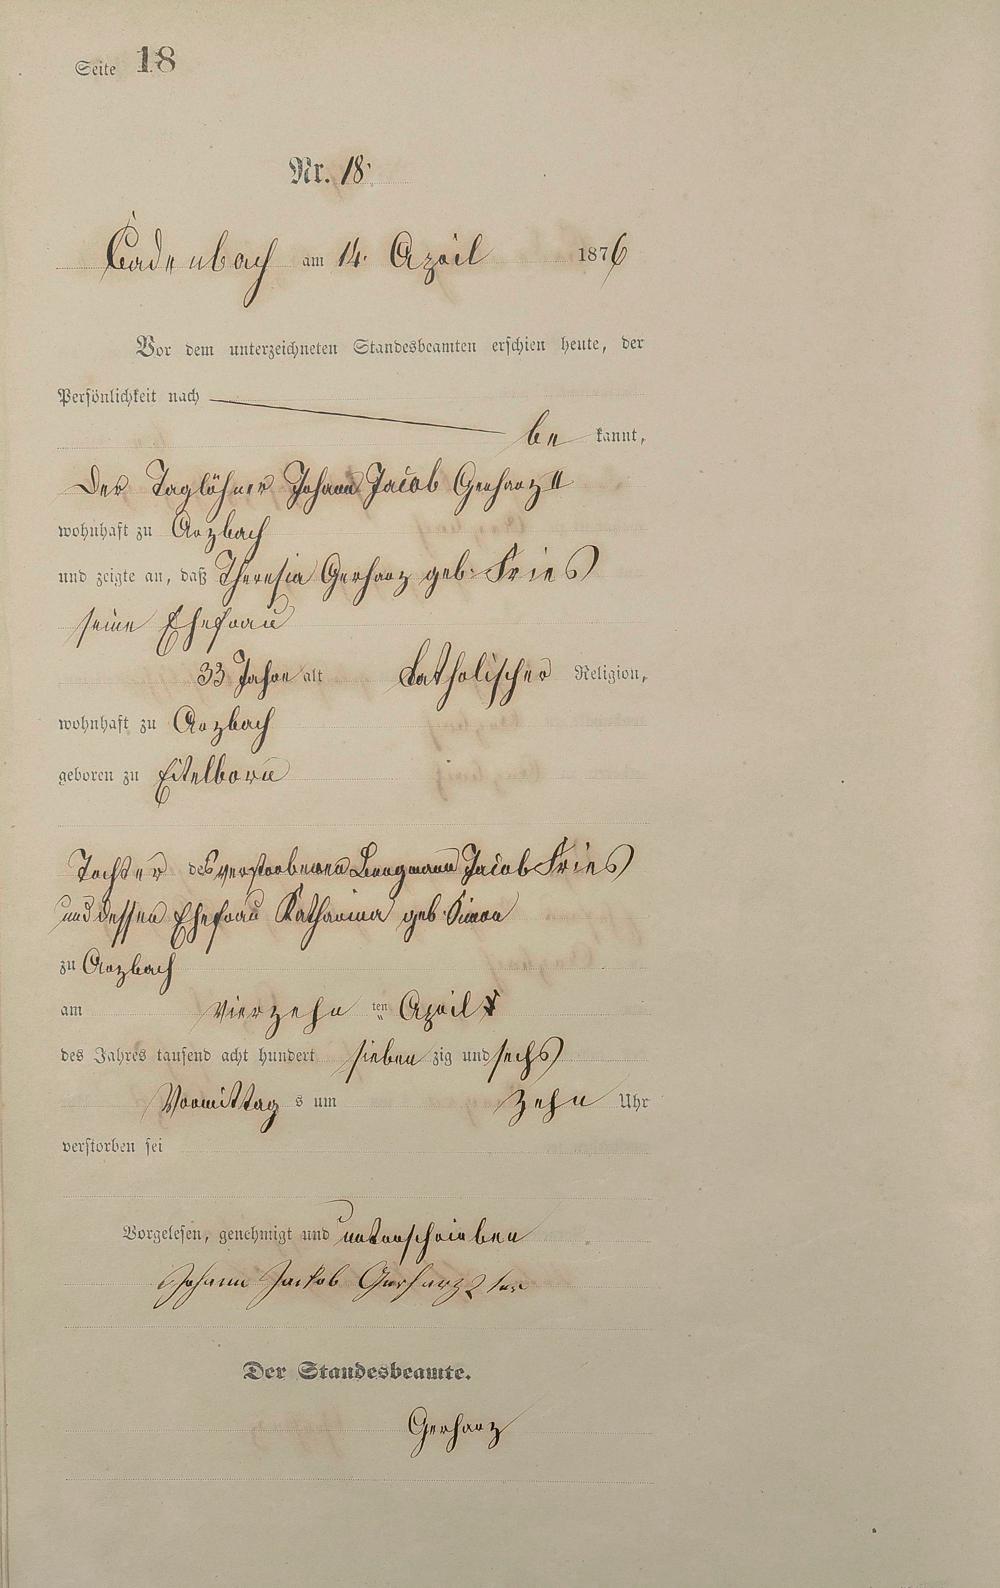 Seite 18
Nr. 18.
Cadenbach am 14. April 1876
Vor dem unterzeichneten Standesbeamten erschien heute, der
Persönlichkeit nach
be kannt,
Der Taglöhner Johann Jacob Gerharz II
wohnhaft zu Arzbach
und zeigte an, daß Theresia Gerharz geb. Fries
seine Ehefrau
33 Jahre alt katholischer Religion,
wohnhaft zu Arzbach
geboren zu Eitelborn
Tochter des verstorbenen Bergmann Jacob Fries
und dessen Ehefrau Katharina geb. Simon
zu Arzbach
am vierzehn ten April
des Jahres tausend acht hundert sieben zig und sechs
Vormittag s um zehn Uhr
verstorben sei
Vorgelesen, genehmigt und unterschrieben
Johann Jackob Gerharz 2 ter
Der Standesbeamte.
Gerharz